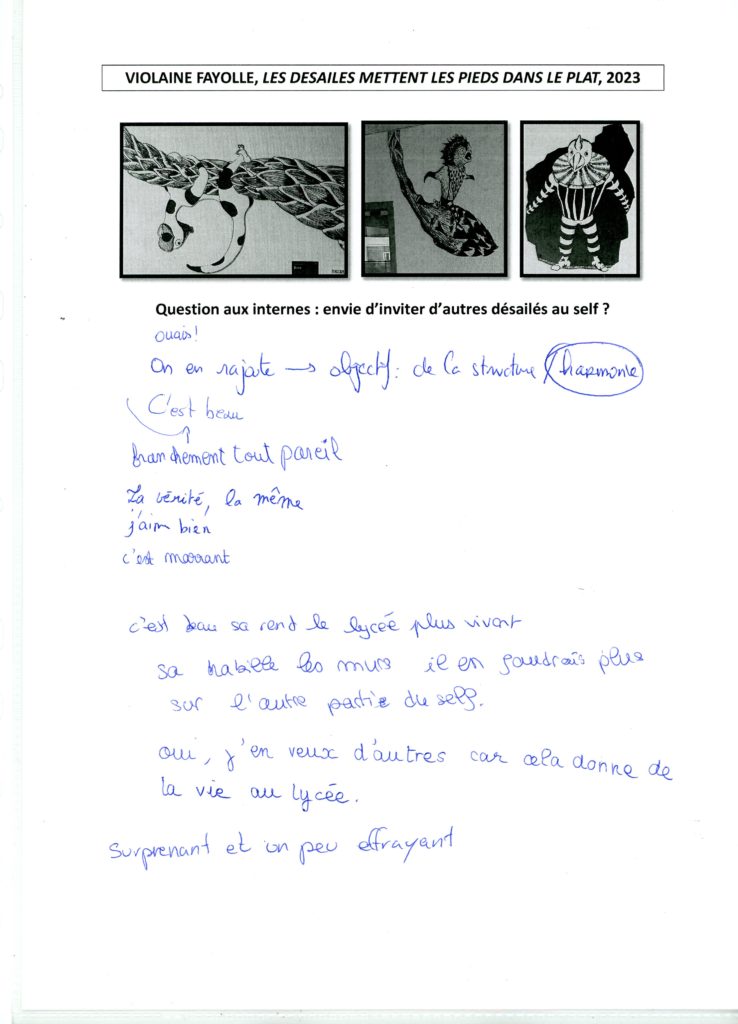 VIOLAINE FAYOLLE, LES DESAILES METTENT LES PIEDS DANS LE PLAT, 2023
Question aux internes : envie d'inviter d'autres désailés au self ?
ouais!
On en rajoute → objectif : de la structure (harmonie
C'est beau
franchement tout pareil
La vérité, la même
j'aim bien
c'est marrant
c'est beau sa rend le lycée plus vivant
sa habille les murs il en faudrais plus
sur l'autre partie du self.
oui, j'en veux d'autres car cela donne de
la vie au lycée.
Surprenant et un peu effrayant